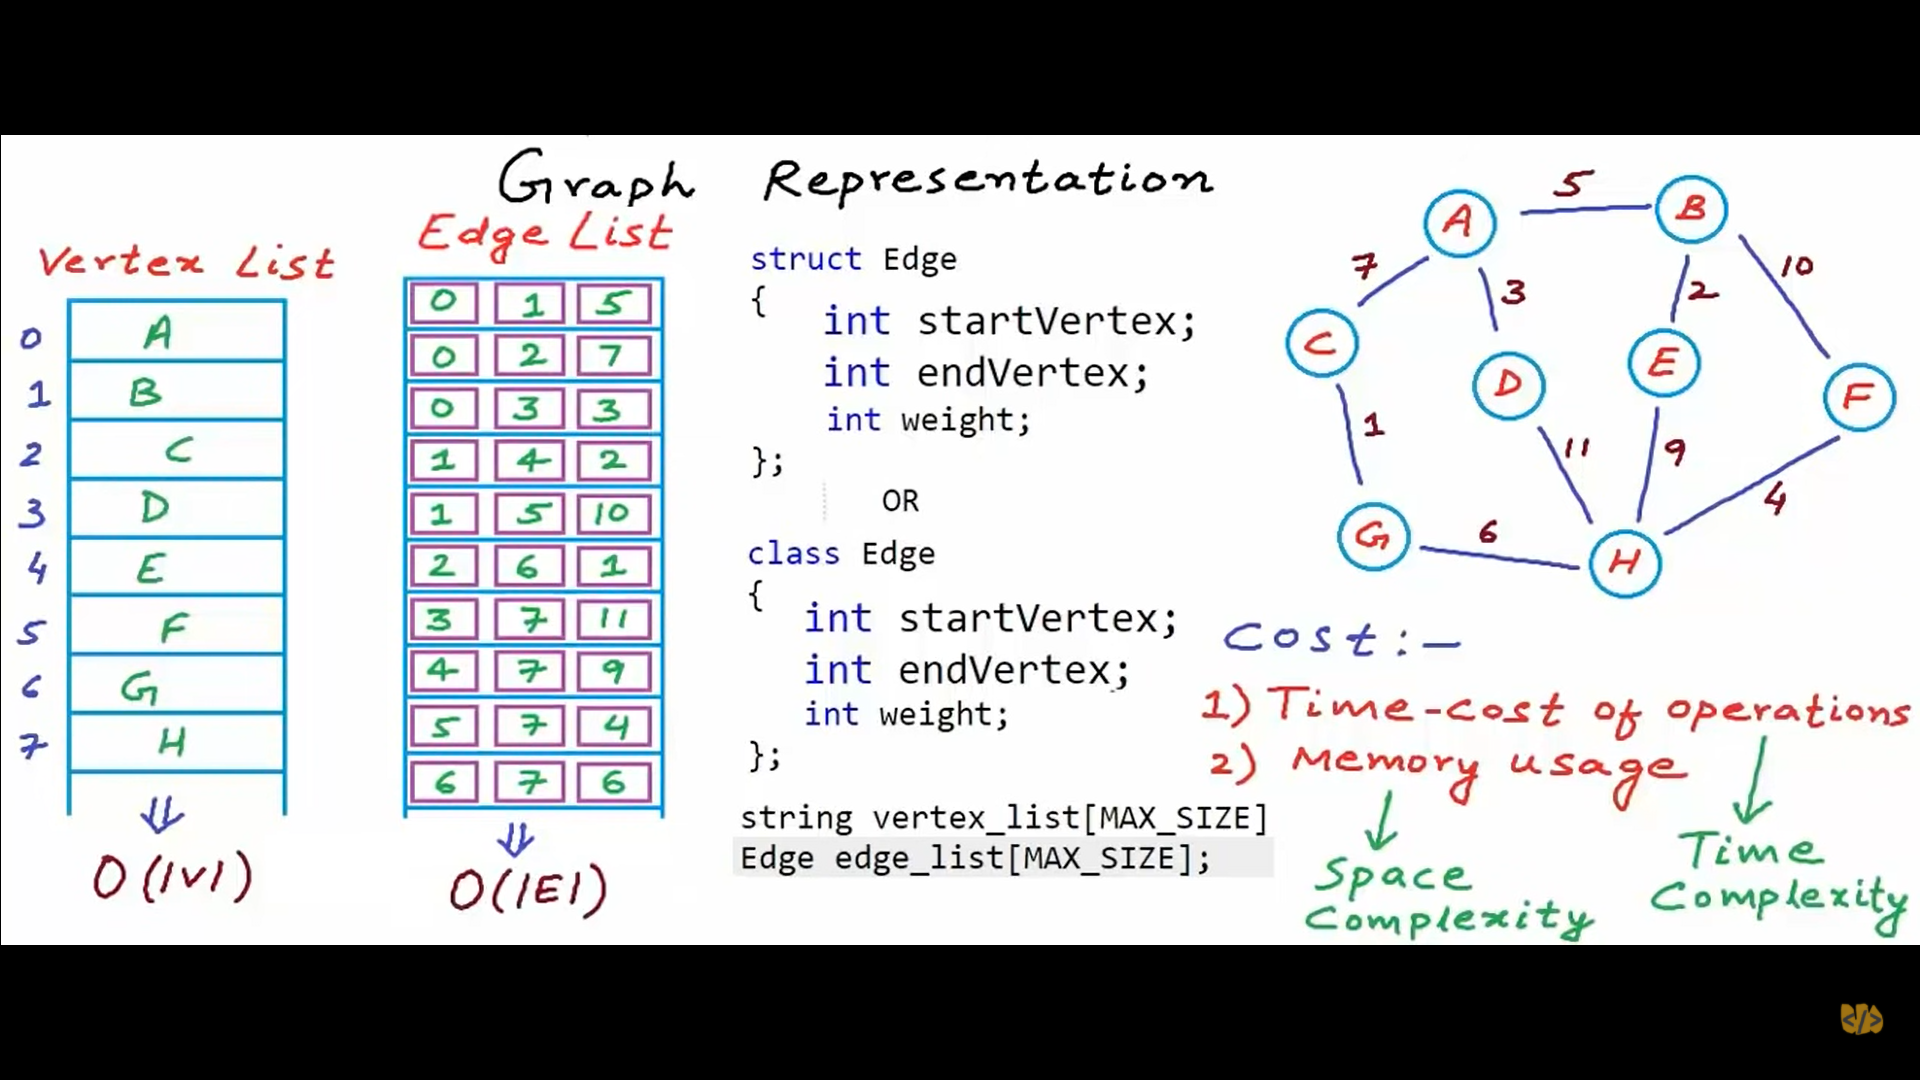 Graph Representation
Vertex List
0 A
1 B
2 C
3 D
4 E
5 F
6 G
7 H
O(|V|)
Edge List
0 1 5
0 2 7
0 3 3
1 4 2
1 5 10
2 6 1
3 7 11
4 7 9
5 7 4
6 7 6
O(|E|)
struct Edge
{
int startVertex;
int endVertex;
int weight;
};
OR
class Edge
{
int startVertex;
int endVertex;
int weight;
};
string vertex_list[MAX_SIZE]
Edge edge_list[MAX_SIZE];
A 5 B
7 3 2 10
C D E F
1 11 9 4
G 6 H
Cost:-
1) Time-cost of operations
2) Memory usage
Space
Complexity
Time
Complexity